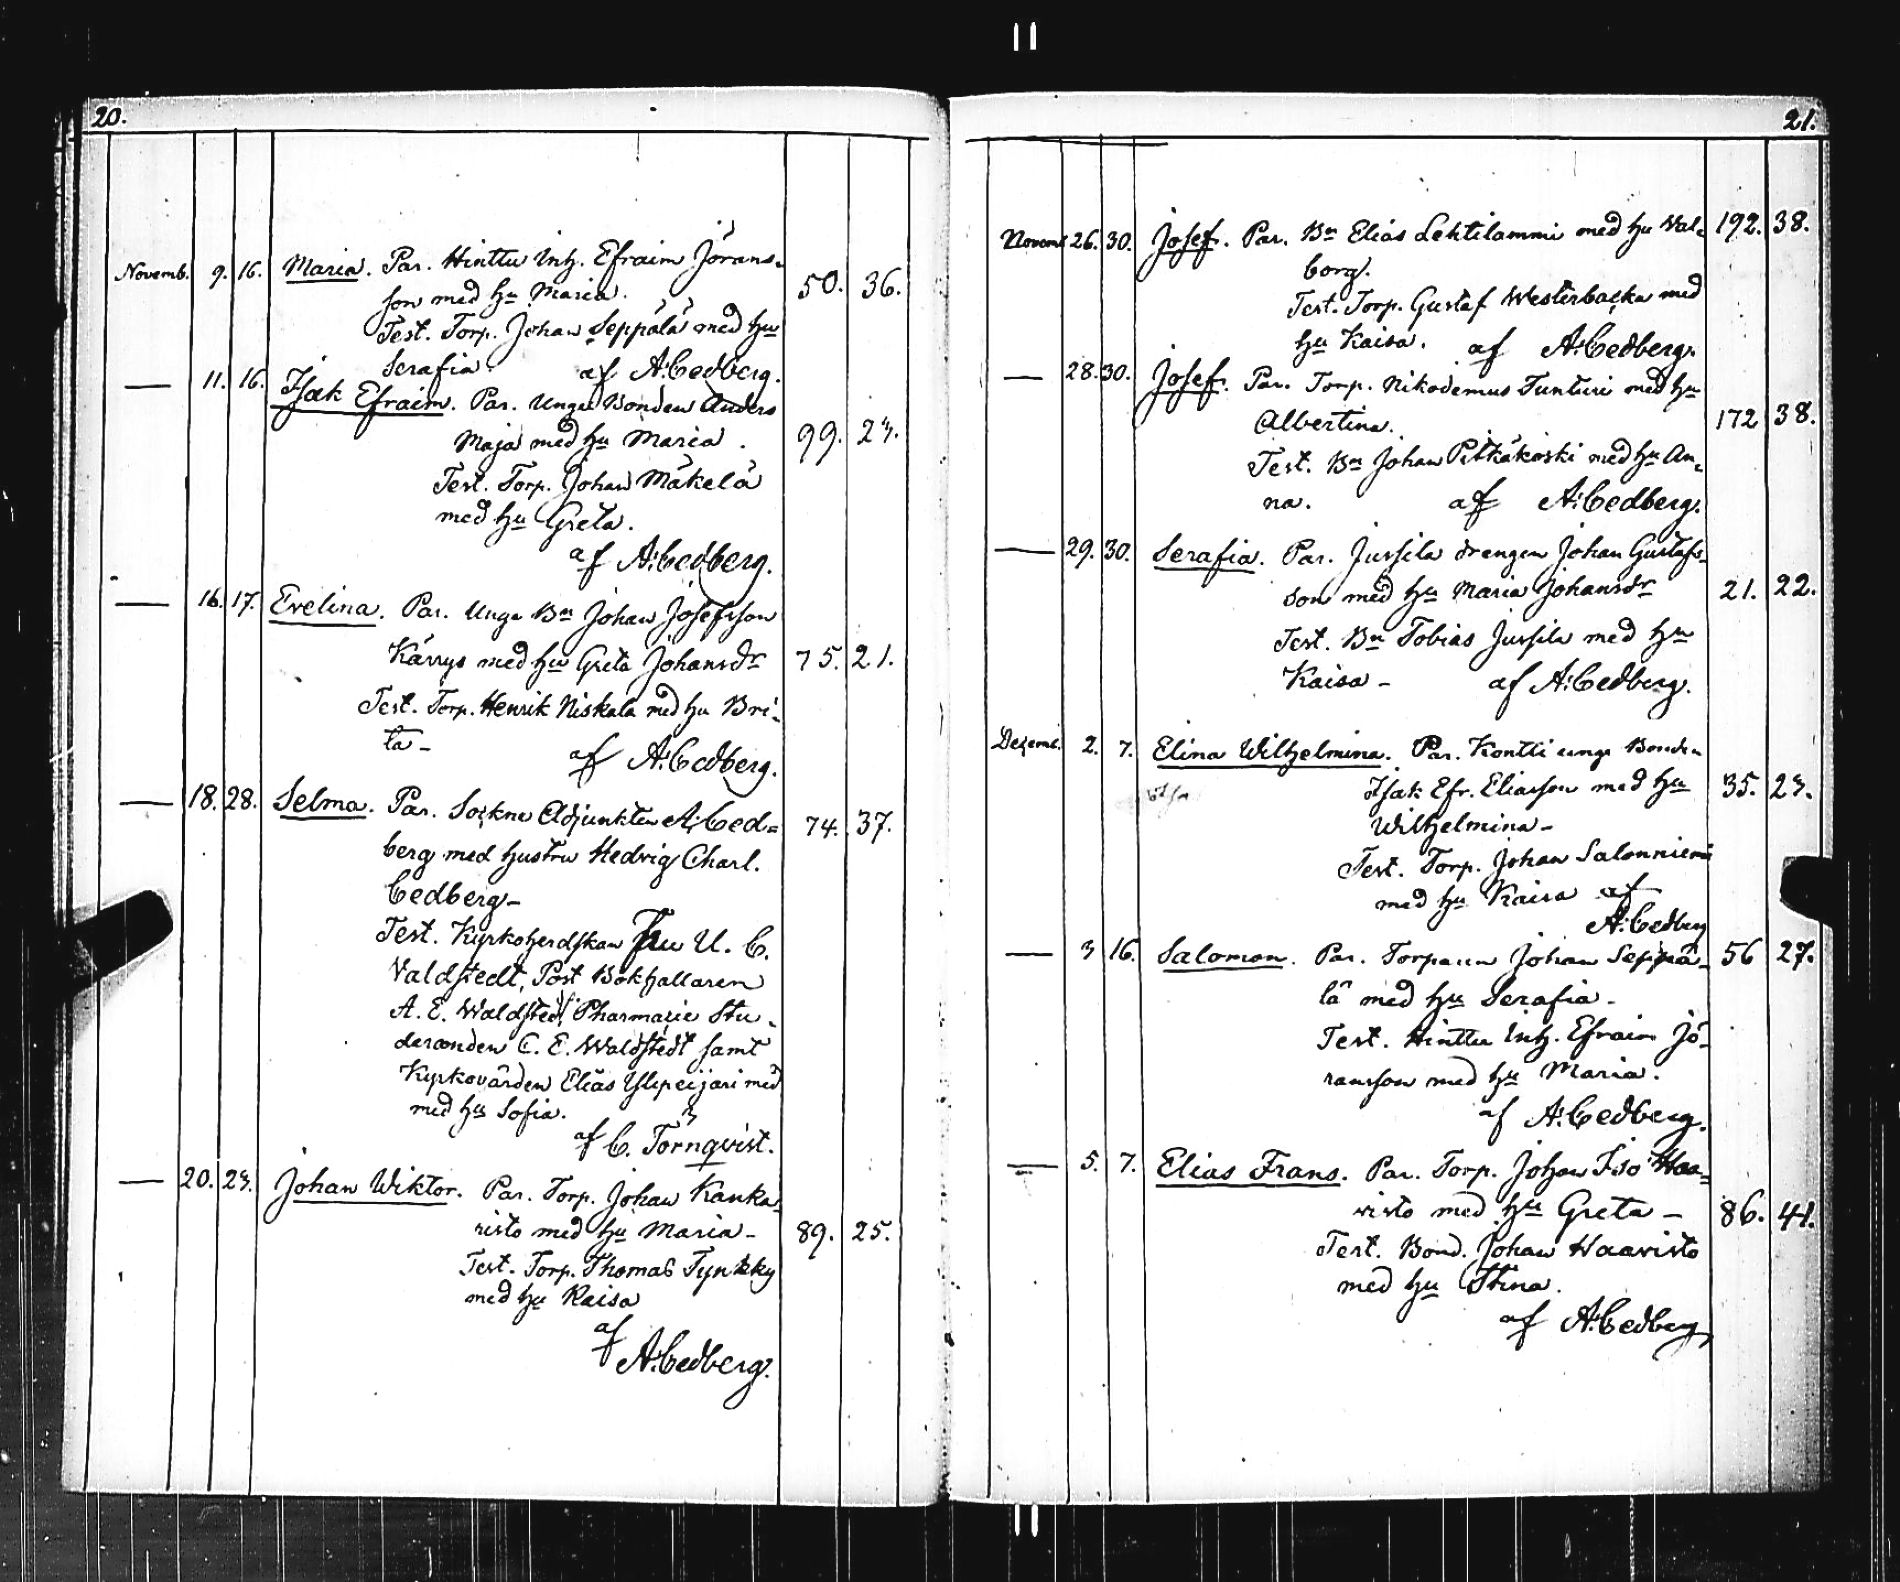 20.
Novemb. 9. 16. Maria. Par. Hinttu Inh. Efraim Jörans-
son med hu Maria. 50. 36.
Test. Torp. Johan Seppälä med hu
Serafia. af A. Cedberg.
— 11. 16. Isak Efraim. Par. Unge Bonden Anders
Maja med hu Maria. 99. 24.
Test. Torp. Johan Mäkelä
med hu Greta.
af A. Cedberg.
— 16. 17. Evelina. Par. Unge Bn Johan Josefsson
Kärrys med hu Greta Johansdr 75. 21.
Test. Torp. Henrik Niskala med hu Bri-
ta –
af A. Cedberg.
— 18. 28. Selma. Par. Sockne Adjunkten A. Ced= 74. 37.
berg med hustru Hedvig Charl.
Cedberg –
Test. Kyrkoherdskan Fru U. C.
Valdstedt, Post Bokhallaren
A. E. Waldstedt, Pharmacie Stu-
deranden C. E. Waldstedt samt
Kyrkovärden Elias Ylipeijari med
med hu Sofia.
af C. Törnqvist.
— 20. 24. Johan Wiktor. Par. Torp. Johan Kanka-
risto med hu Maria – 89. 25.
Test. Torp. Thomas
med hu Kaisa
af
A. Cedberg.
21.
Novemb. 26. 30. Josef. Par. Bn Elias Lehtilammi med hu Val- 192. 38.
borg.
Test. Torp. Gustaf Westerbacka med
hu Kaisa. af A. Cedberg.
— 28. 30. Josef. Par. Torp. Nikodemus Tunturi med hu
Albertina. 172 38.
Test. Bn Johan Pitkäkoski med hu An-
na. af A. Cedberg.
— 29. 30. Serafia. Par. Jussila drengen Johan Gustafs-
son med hu Maria Johansdr 21. 22.
Test. Bn Tobias Jussila med hu
Kaisa – af A. Cedberg.
Dezemb. 2. 7. Elina Wilhelmina. Par. Kontti unge Bonden
Isak Efr. Eliasson med hu 35. 24.
Wilhelmina –
Test. Torp. Johan Salonniemi
med hu Kaisa af
A. Cedberg
— 3 16. Salomon. Par. Torparen Johan Seppä- 56 27.
lä med hu Serafia –
Test. Hinttu Inh. Efraim Jö-
ransson med hu Maria.
af A. Cedberg.
— 5. 7. Elias Frans. Par. Torp. Johan Iso Haa-
visto med hu Greta – 86. 41.
Test. Bond. Johan Haavisto
med hu Stina.
af A. Cedberg